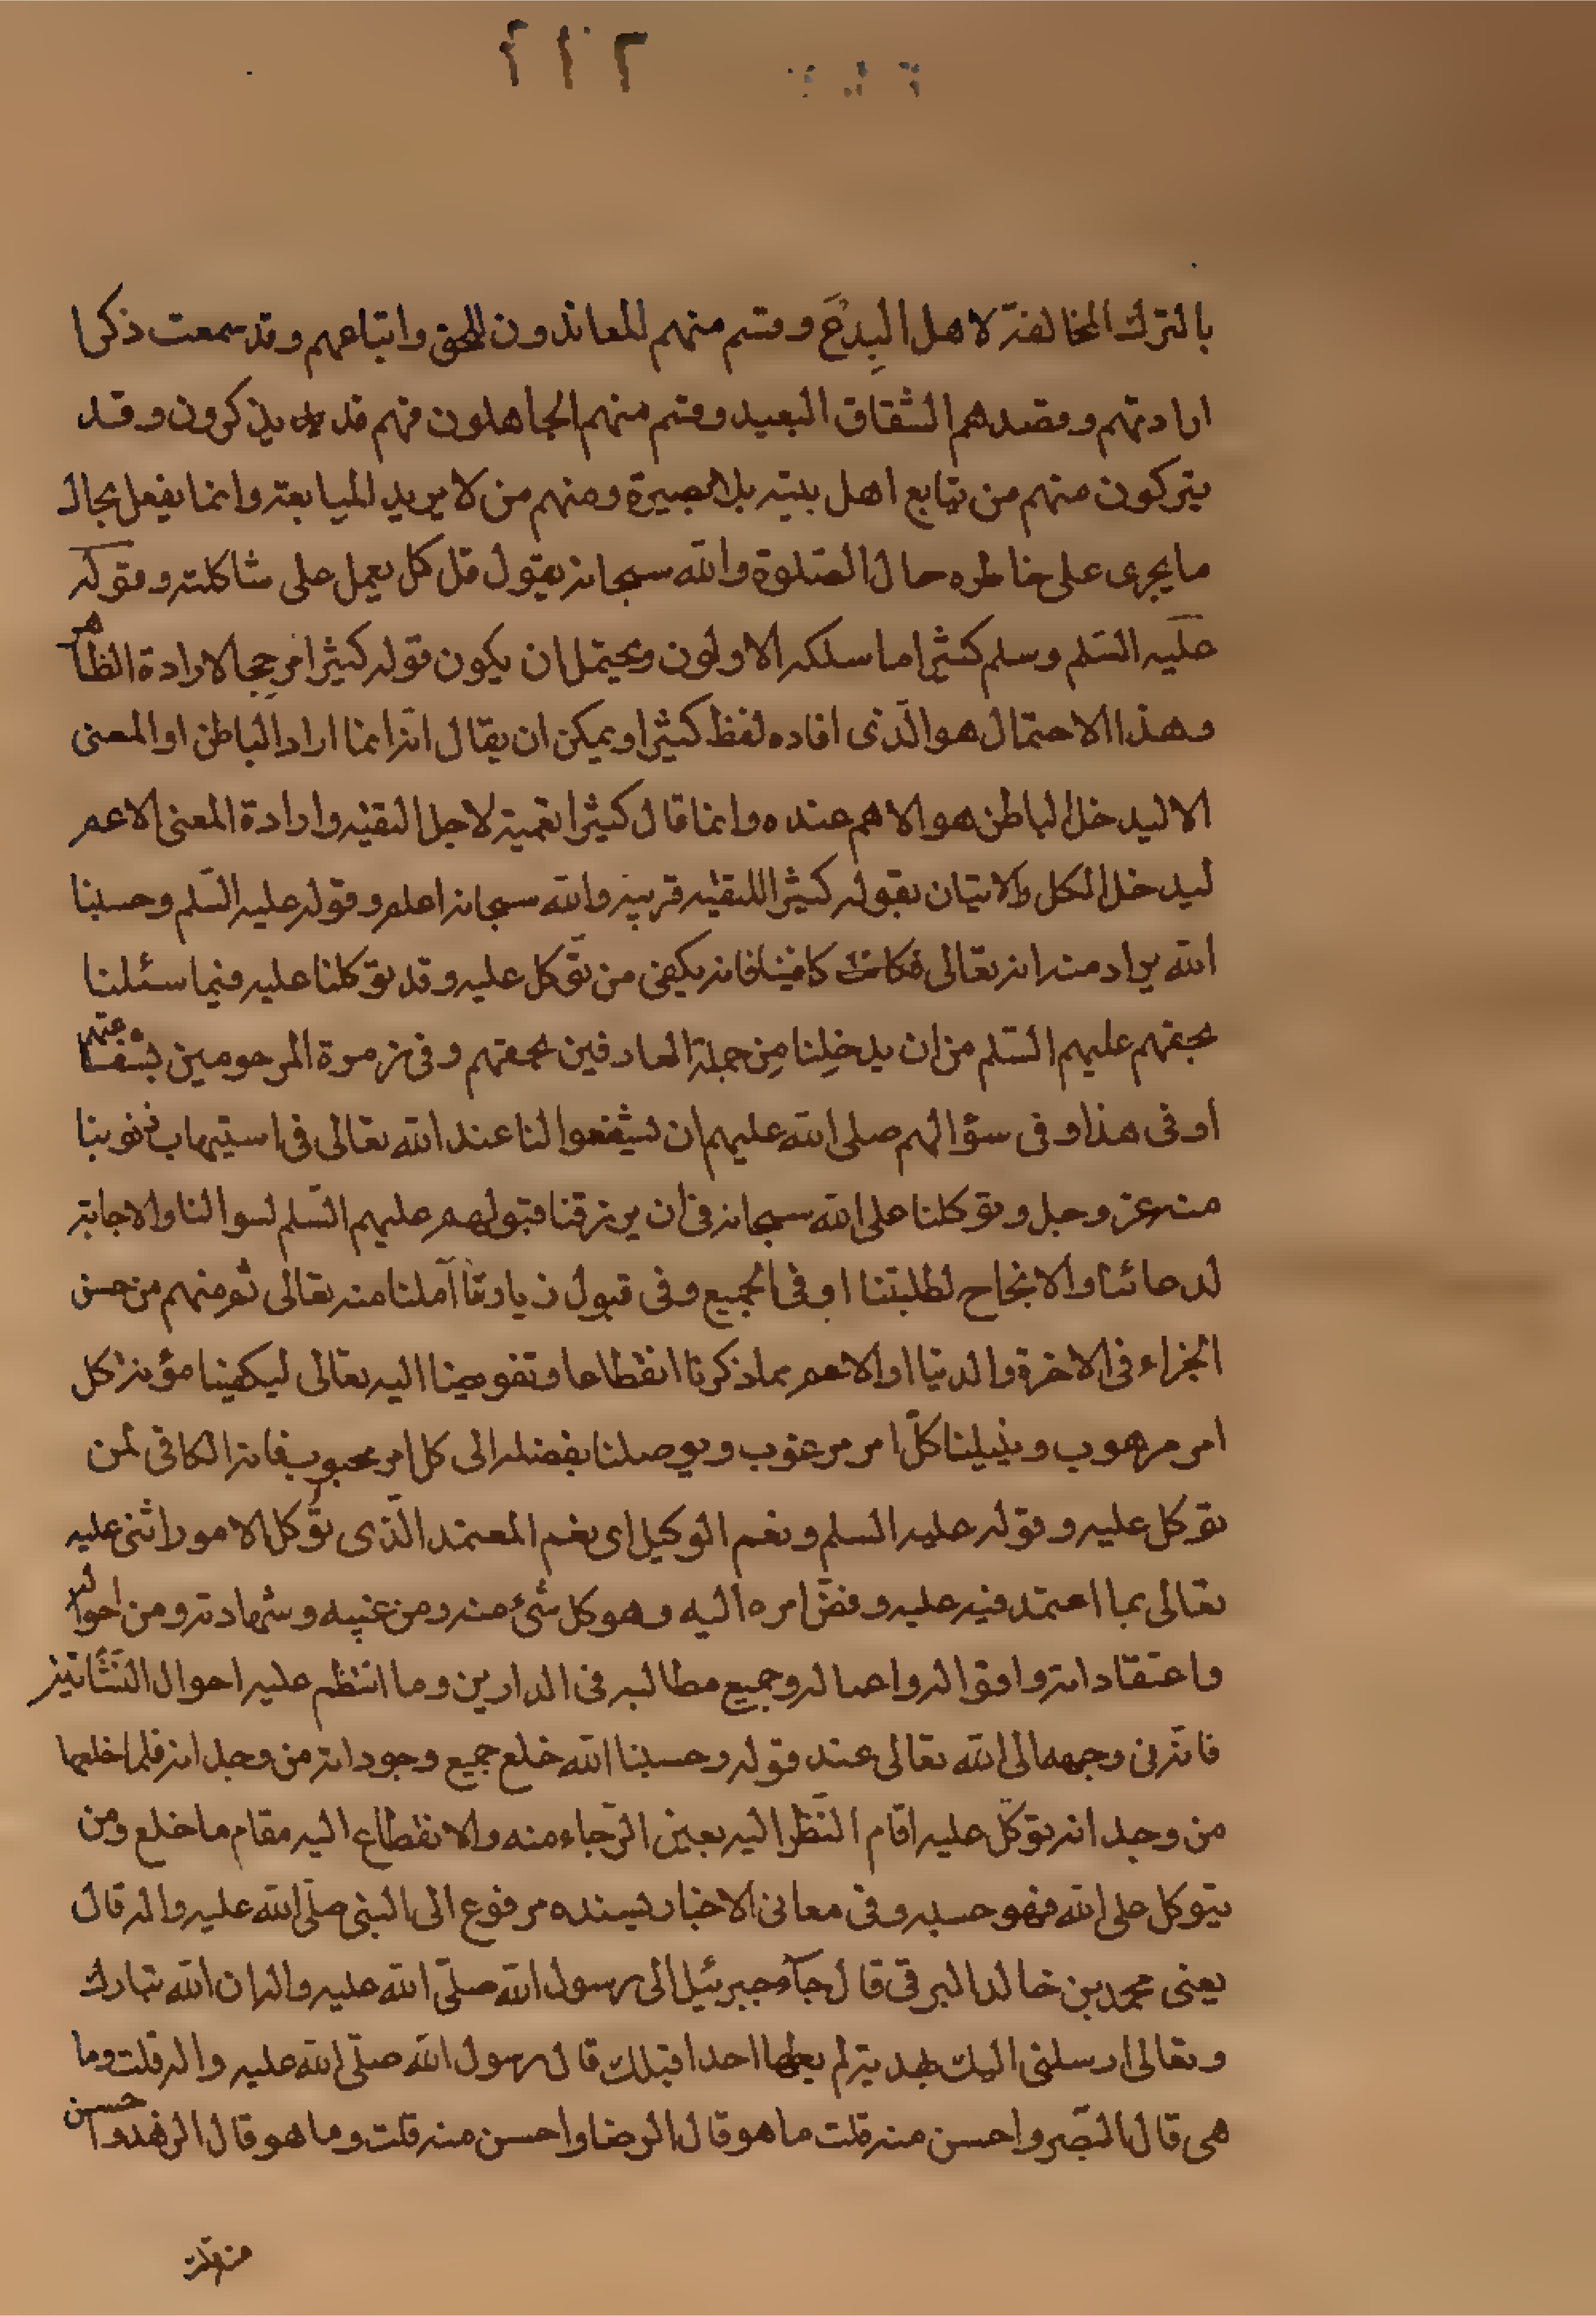 بالترك المخالفة لاهل البِدَع وقسم منهم المعاندون للحق واتباعهم وقد سمعت ذكر
ارادتهم وقصدهم الشقاق البعيد وقسم منهم الجاهلون فهم قد يذكرون وقد
يتركون منهم من يتابع اهل بيته بلا بصيرة ومنهم من لا يريد المبايعة وانما يفعل بحال
ما يجرى على خاطره حال الصّلوة والله سبحانه يقول قل كل يعمل على شاكلته وقوله
عليه السّلم وسلم كثيرا ما سلكه الاولون ويحتمل ان يكون قوله كثيرا مرجحا لارادة الظاهر
وهذا الاحتمال هو الّذى افاده لفظ كثيرا ويمكن ان يقال انّه انما اراد الباطن او المعنى
الا ليدخل الباطن هو الاهم عنده وانما قال كثيرا تعمية لاجل التقيه وارادة المعنى الاعم
ليدخل الكل والاتيان بقوله كثيرا للتقيه قرينة والله سبحانه اعلم وقوله عليه السّلم وحسبنا
الله يراد منه انه تعالى كافينا فانه يكفى من توّكل عليه وقد توكلنا عليه فيما سئلنا
بحقهم عليهم السّلم من ان يدخِلنا مِن جملة العارفين بحقهم وفى زمرة المرحومين بشفاعتهم
او فى هذا وفى سؤالهم صلى الله عليهم ان يشفعوا لنا عند الله تعالى فى استيهاب ذنوبنا
منه عز وجل وتوكلنا على الله سبحانه فى ان يرزقنا قبولهم عليهم السّلم لسوالنا والاجابة
لدعائنا والانجاح لطلبتنا او فى الجميع وفى قبول زيارتنا آملنا منه تعالى ثم منهم من حسن
الجزاء فى الاخرة والدنيا او الاعم مما ذكرنا انقطاعا وتفويضا اليه تعالى ليكفينا مؤنة كل
امر مرهوب وينيلنا كلّ امر مرغوب ويوصلنا بفضله الى كل امر محبوب فانه الكافى لمن
توكل عليه وقوله عليه السلم ونعم الوكيل اى نعم المعتمد الّذى توّكل الامور اثنى عليه
تعالى بما اعتمد فيه عليه وفضّ امره اليه وهو كل شئ منه ومن غيبه وشهادته ومن احواله
واعتقاداته واقواله واعماله وجميع مطالبه فى الدارين وما انتظم عليه احوال النّشأتين
فانّه فى وجهه الى الله تعالى عند قوله وحسبنا الله خلع جميع وجوداته من وجدانه فلما خلعها
من وجدانه توكّل عليه اقام النّظر اليه بعين الرّجاء منه والانقطاع اليه مقام ما خلع ومن
يتوكل على الله فهو حسبه وفى معانى الاخبار بسنده مرفوع الى النبى صلّى الله عليه واله قال
يعنى محمد بن خالد البرقى قال جآء جبرئيل الى رسول الله صلّى الله عليه واله ان الله تبارك
وتعالى ارسلنى اليك بهدية لم يعطها احدا قبلك قال رسول الله صلّى الله عليه واله قلت وما
هى قال الصّبر واحسن منه قلت ما هو قال الرضا واحسن منه قلت وما هو قال الزهد واحسن
منه قلت